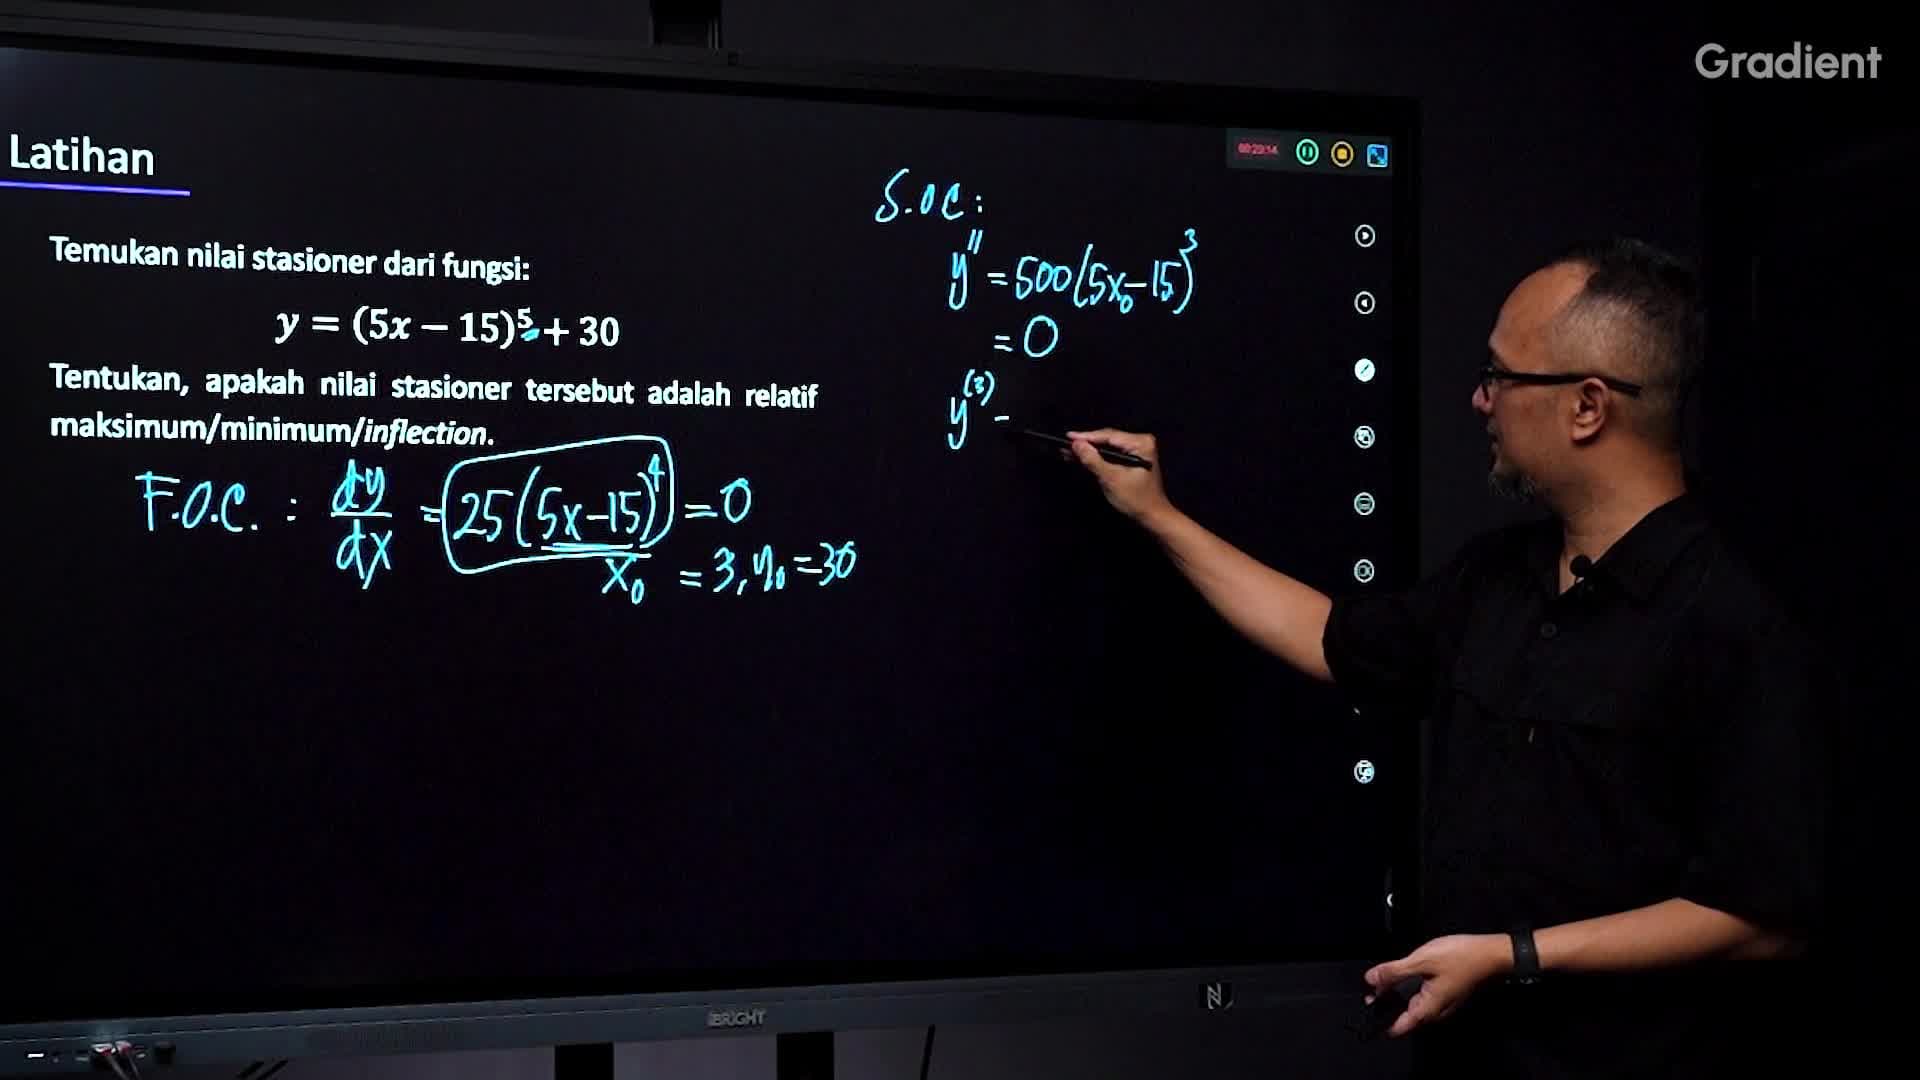 Gradient
Latihan
00:23:14
Temukan nilai stasioner dari fungsi:
y = (5x − 15)⁵ + 30
Tentukan, apakah nilai stasioner tersebut adalah relatif
maksimum/minimum/inflection.
F.O.C. : dy/dx = 25(5x−15)⁴ = 0
x₀ = 3, y₀ = 30
S.O.C:
y'' = 500(5x₀−15)³
= 0
y⁽³⁾ -
BRIGHT